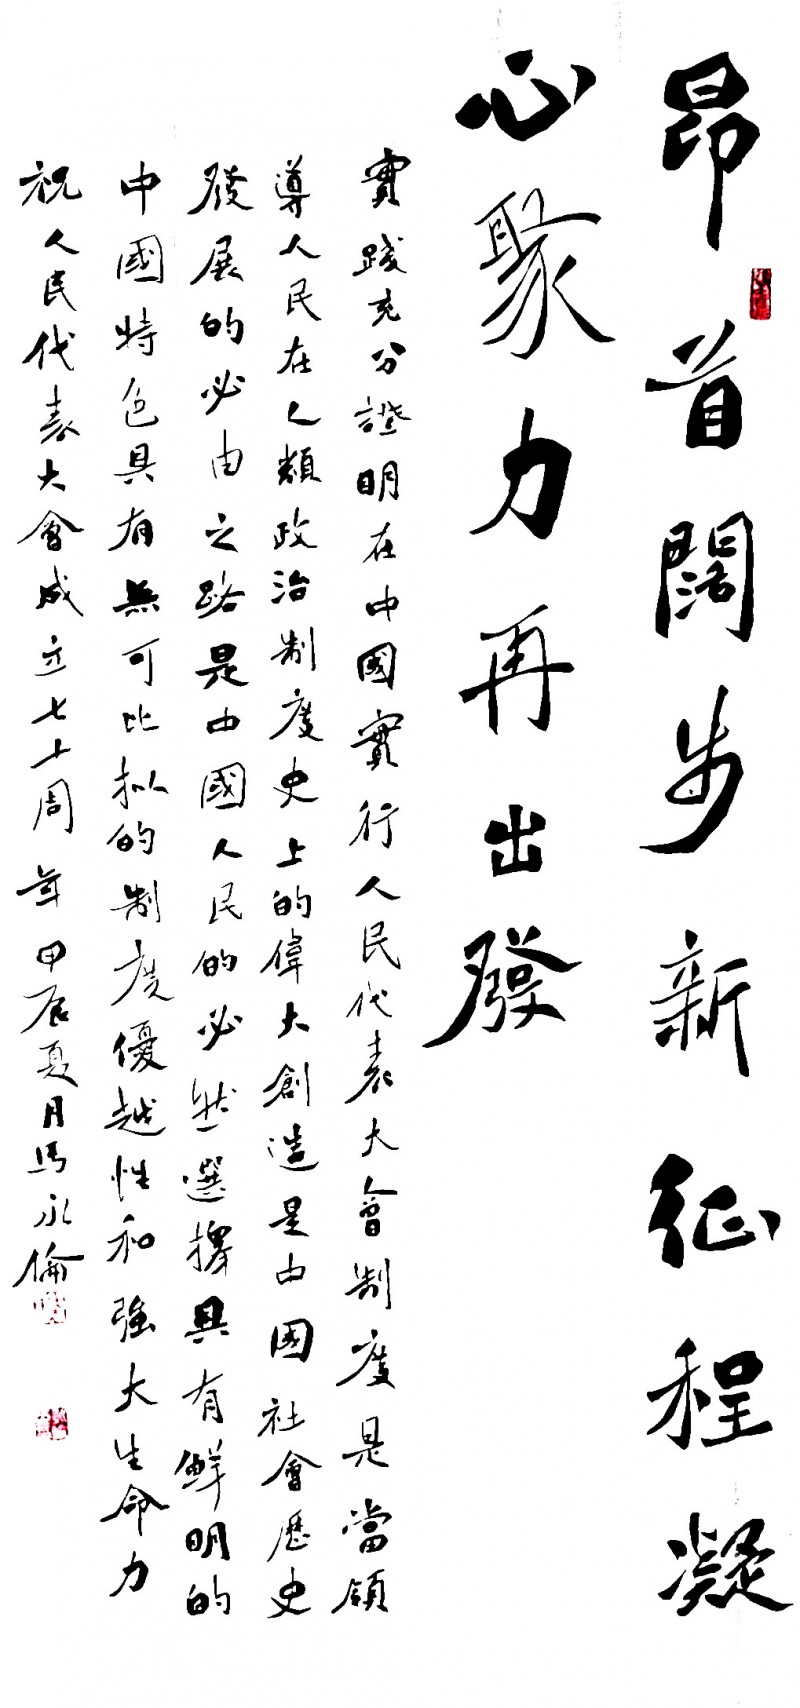 昂首闊步新征程凝
心聚力再出發
實踐充分證明在中國實行人民代表大會制度是當領
導人民在人類政治制度史上的偉大創造是中國社會歷史
發展的必由之路是中國人民的必然選擇具有鮮明的
中國特色具有無可比拟的制度優越性和強大生命力
祝人民代表大會成立七十周年甲辰夏月馬永倫